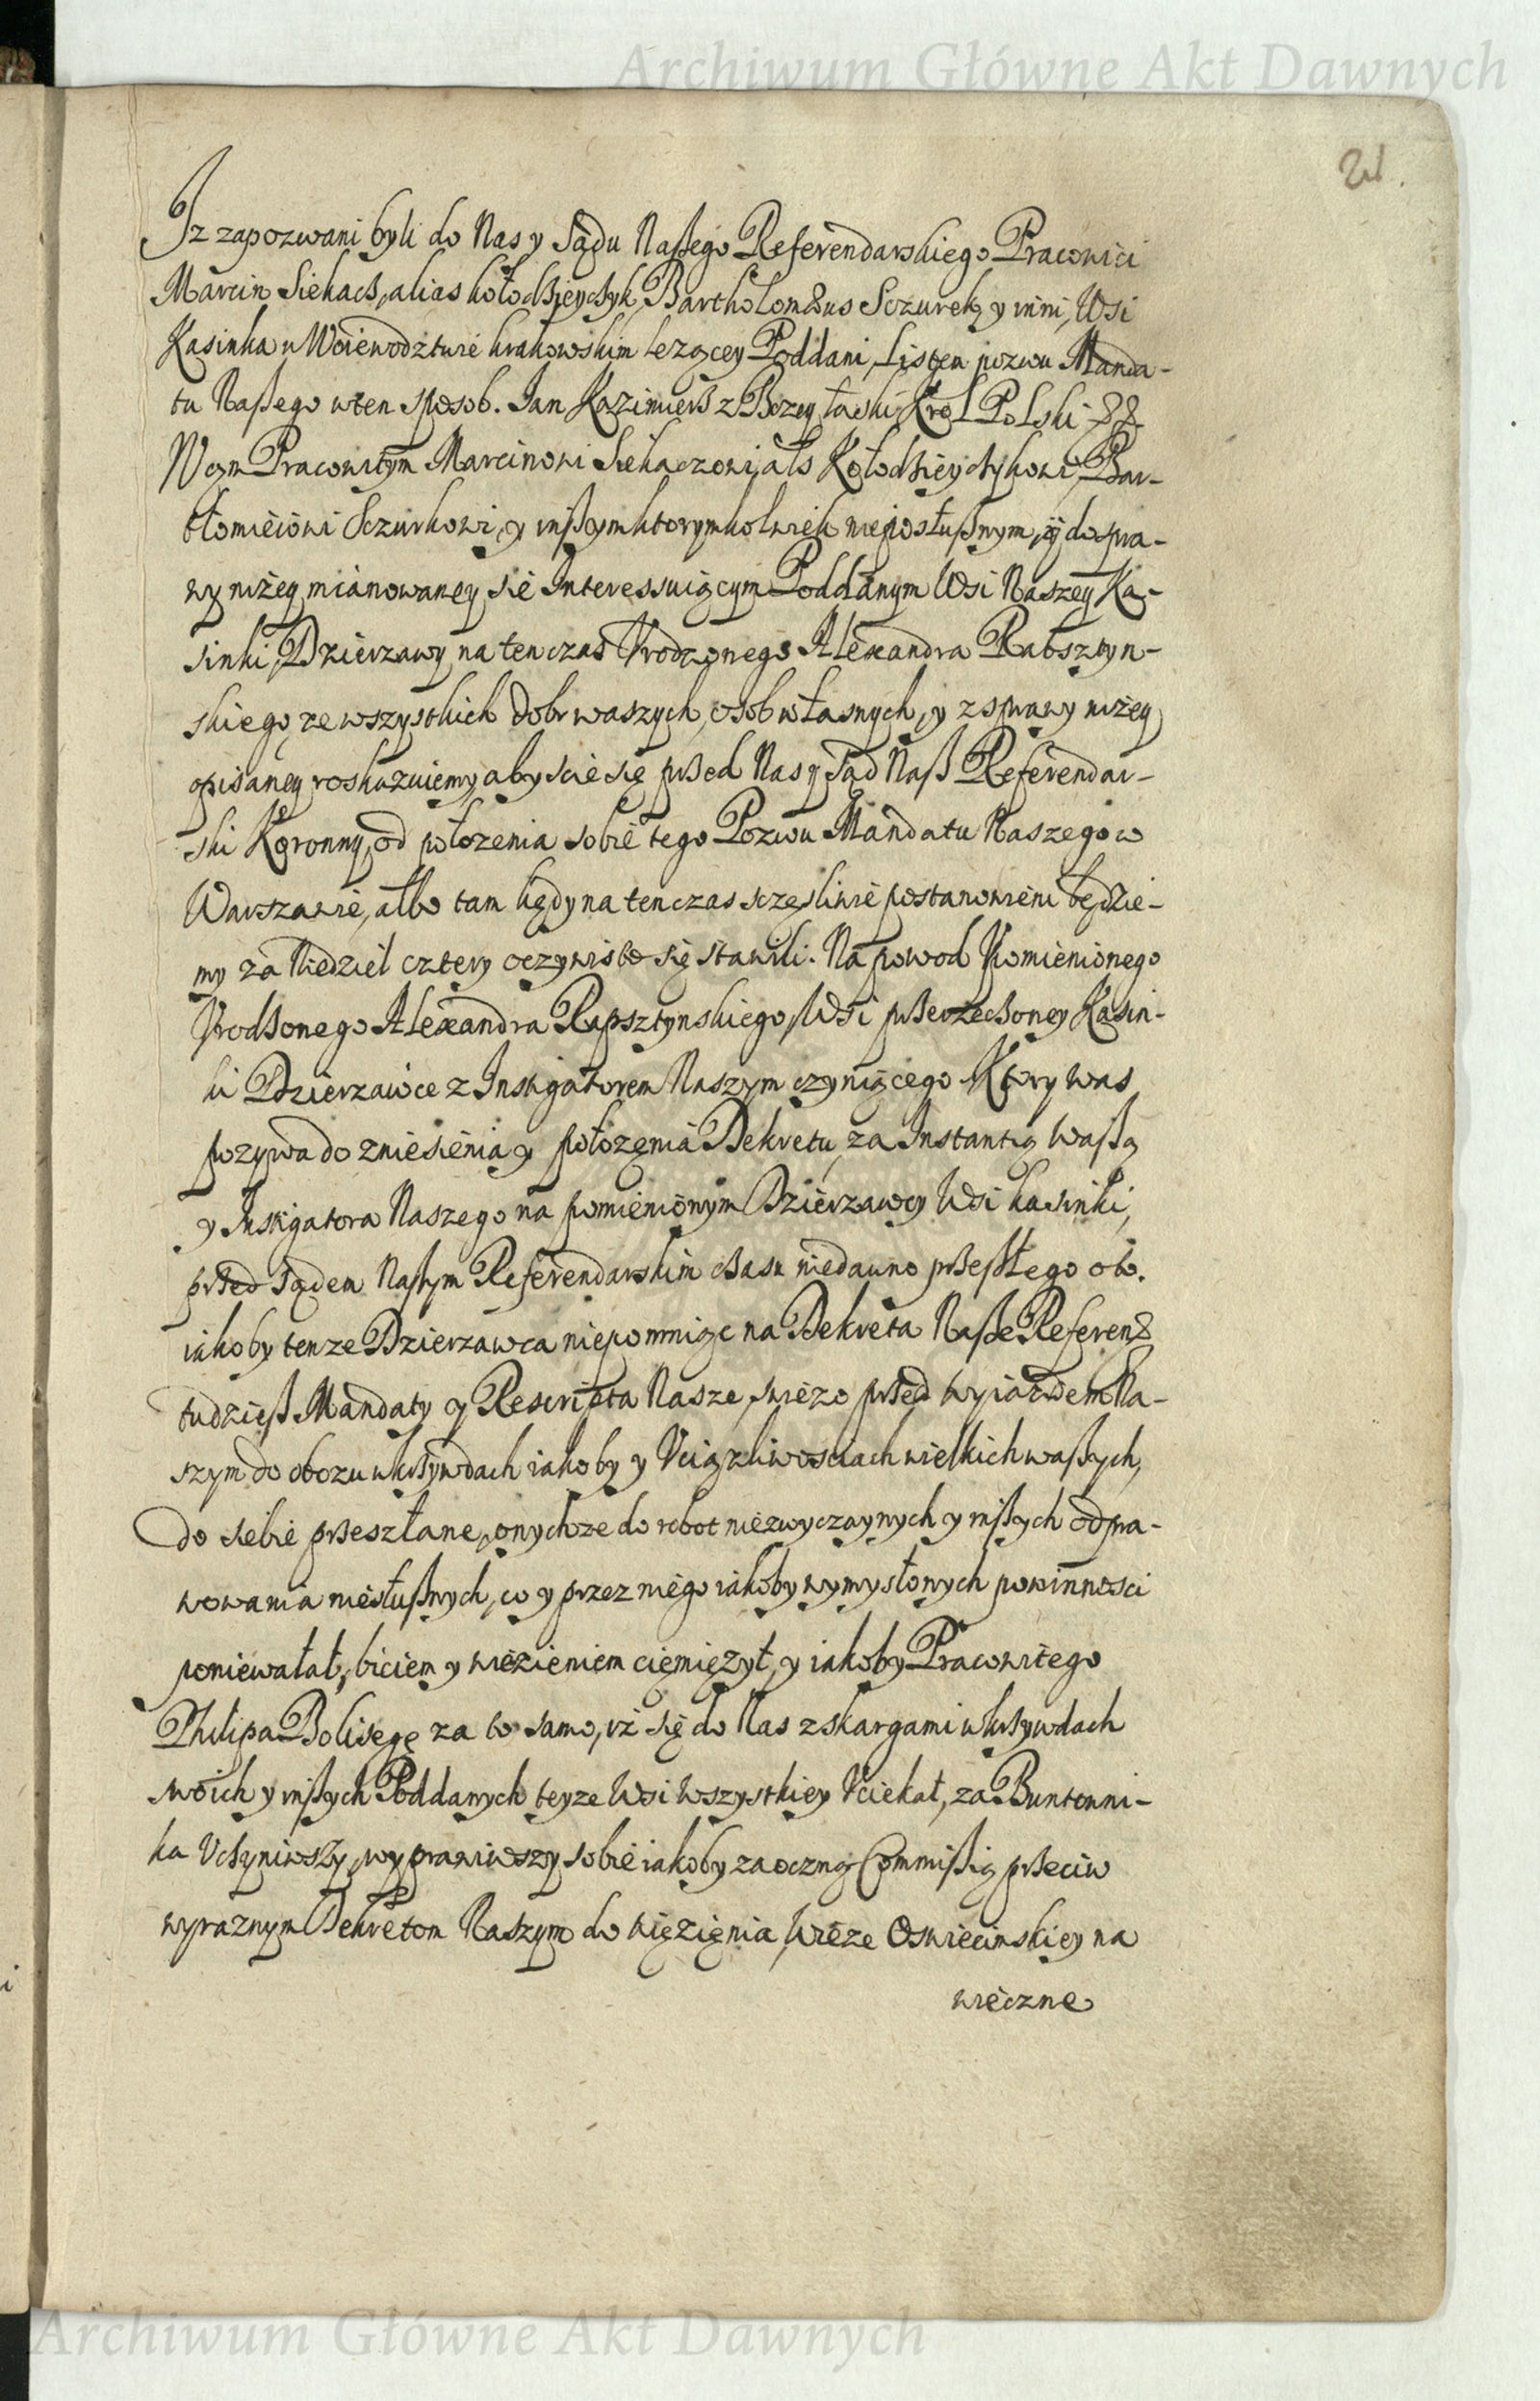 Archiwum Główne Akt Dawnych
21.
Iz zapozwani byli do Nas y Sądu Naßego Referendarskiego Pracowici
Marcin Siekacz, alias Kołodzieyczyk, Bartholomæus Sczurek, y inni, Wsi
Kasinka w Woiewodztwie Krakowskim lezącey Poddani, Listem pozwu Manda-
tu Naßego w ten sposob. Jan Kazimierz z Bozey łaski Krol Polski &&.
Wam Pracowitym Marcinowi Siekaczowi, als Kołodzieyczykowi, Bar-
tłomieiowi Sczurkowi, y inßym ktorymkolwiek nieposłußnym, y do spra-
wy nizey mianowaney się Interessuiącym Poddanym Wsi Naszey Ka-
sinki, Dzierzawy na ten czas Vrodzonego Alexandra Rabsztyn-
skiego, ze wszystkich dobr waszych, osob własnych, y z sprawy nizey
opisaney roskazuiemy, abyscie się przed Nas y Sąd Naß Referendar-
ski Koronny, od połozenia sobie tego Pozwu Mandatu Naszego w
Warszawie, albo tam kędy na ten czas sczęsliwie postanowieni będzie-
my za Niedziel cztery oczywisto się stawili. Na powod Pomienionego
Vrodzonego Alexandra Rapsztynskiego, Wsi przerzeczoney Kasin-
ki Dzierzawce z Instigatorem Naszym czyniącego. Ktory was
pozywa do zniesienia y połozenia Dekretu, za Instantią waßą
y Instigatora Naszego na pomienionym Dzierzawcy Wsi Kasinki,
przed Sądem Naßym Referendarskim czasu niedawno przeßłego ob.
iakoby tenze Dzierzawca niepomniąc na Dekreta Naße Referend.
tudzieß Mandaty y Rescripta Nasze, swiezo przed wyiazdem Na-
szym do obozu w krzywdach iakoby y Vciązliwosciach wielkich waßych,
do siebie przesztane, onychze do robot niezwyczaynych y inßych odpra-
wowania niesłußnych, co y przez niego iakoby wymysłonych powinnosci
poniewałał, biciem y więzieniem ciemięzył, y iakoby Pracowitego
Philipa Bolisegę za to samo, iż się do Nas z skargami w krzywdach
swoich y inßych Poddanych teyze Wsi wszystkiey Vciekał, za Buntowni-
ka Vczyniwszy, wyprawiwszy sobie iakoby zaoczną Commißią przeciw
wyraznym Dekretom Naszym do więzięnia, Wieze Oswiecimskiey na
wieczne
Archiwum Główne Akt Dawnych